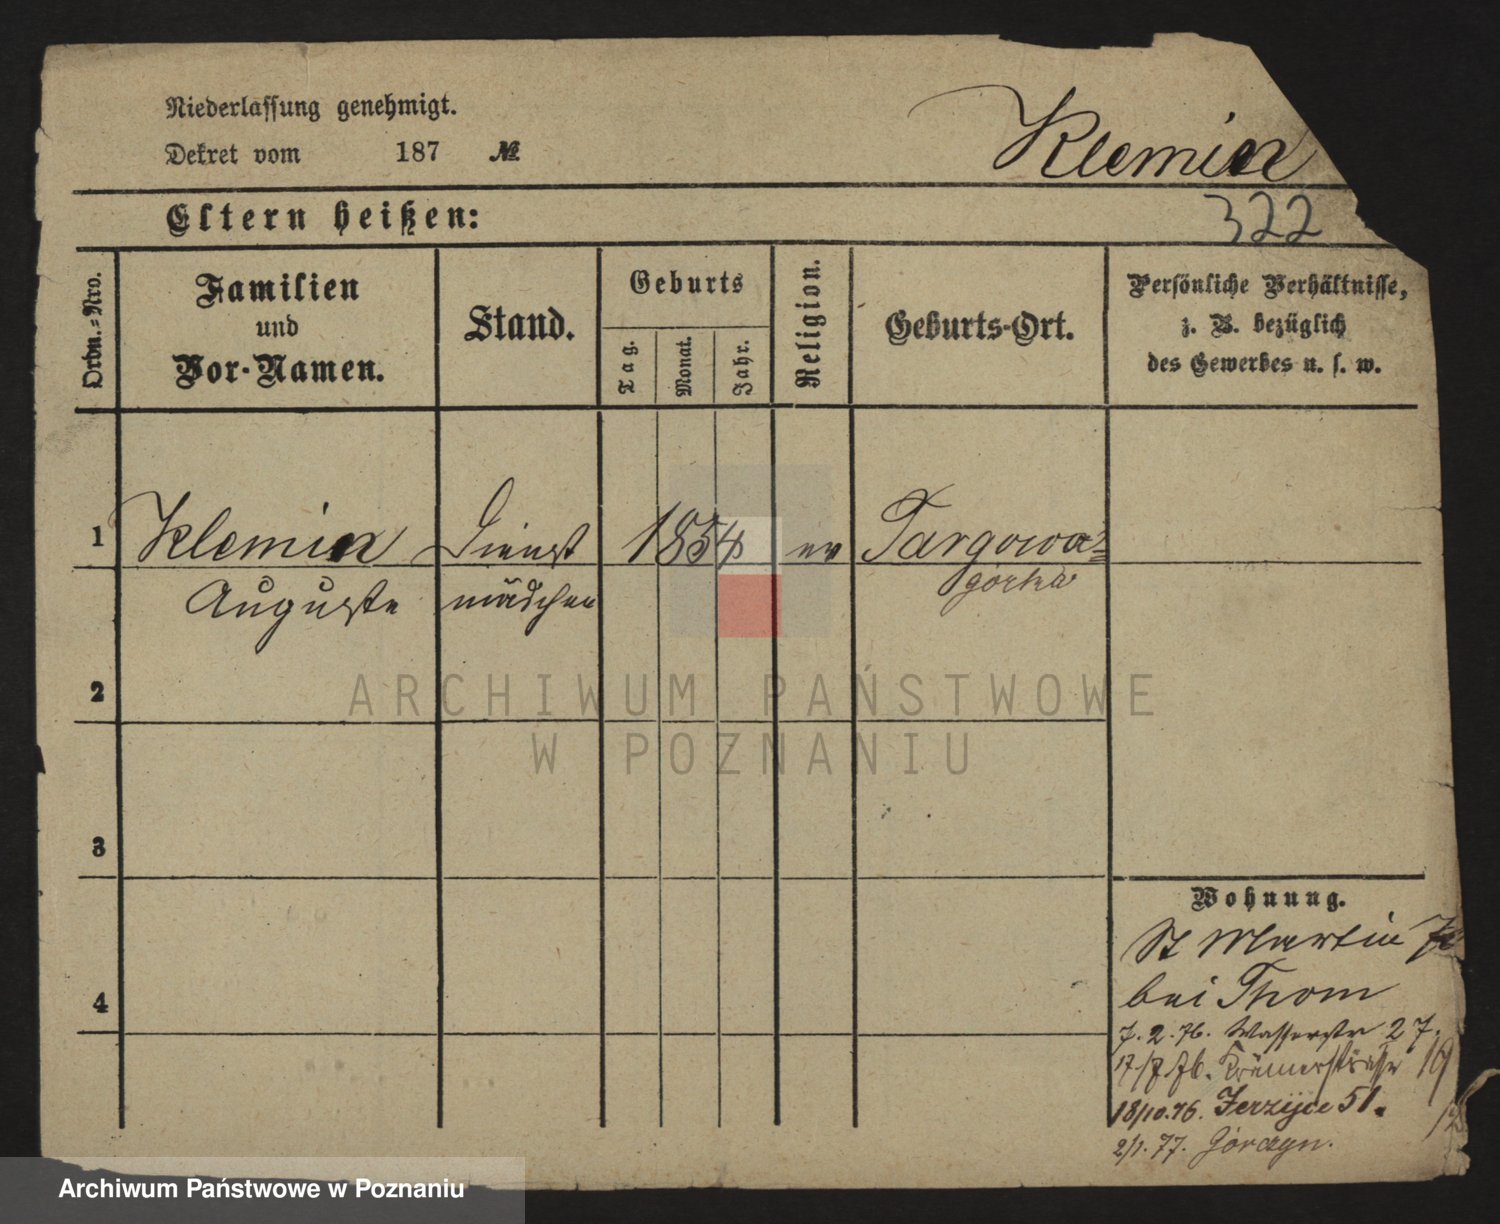 Niederlassung genehmigt.
Dekret vom 187 №
Klemin
Eltern heißen:
322
Ordn.=Nro.
Familien
und
Vor-Namen.
Stand.
Geburts
Tag.
Monat.
Jahr.
Religion.
Geburts-Ort.
Persönliche Verhältnisse,
z. B. bezüglich
des Gewerbes u. s. w.
1 Klemin Dienst 1854 ev Targowa=
Auguste mädchen górka
2
ARCHIWUM PAŃSTWOWE
W POZNANIU
3
Wohnung.
St Martin
bei Thom
4
7.2.76. Wasserstr 27.
17/7.76. Krämerstrasse 19
18/10.76. Jerzyce 51.
2/1.77.
Archiwum Państwowe w Poznaniu